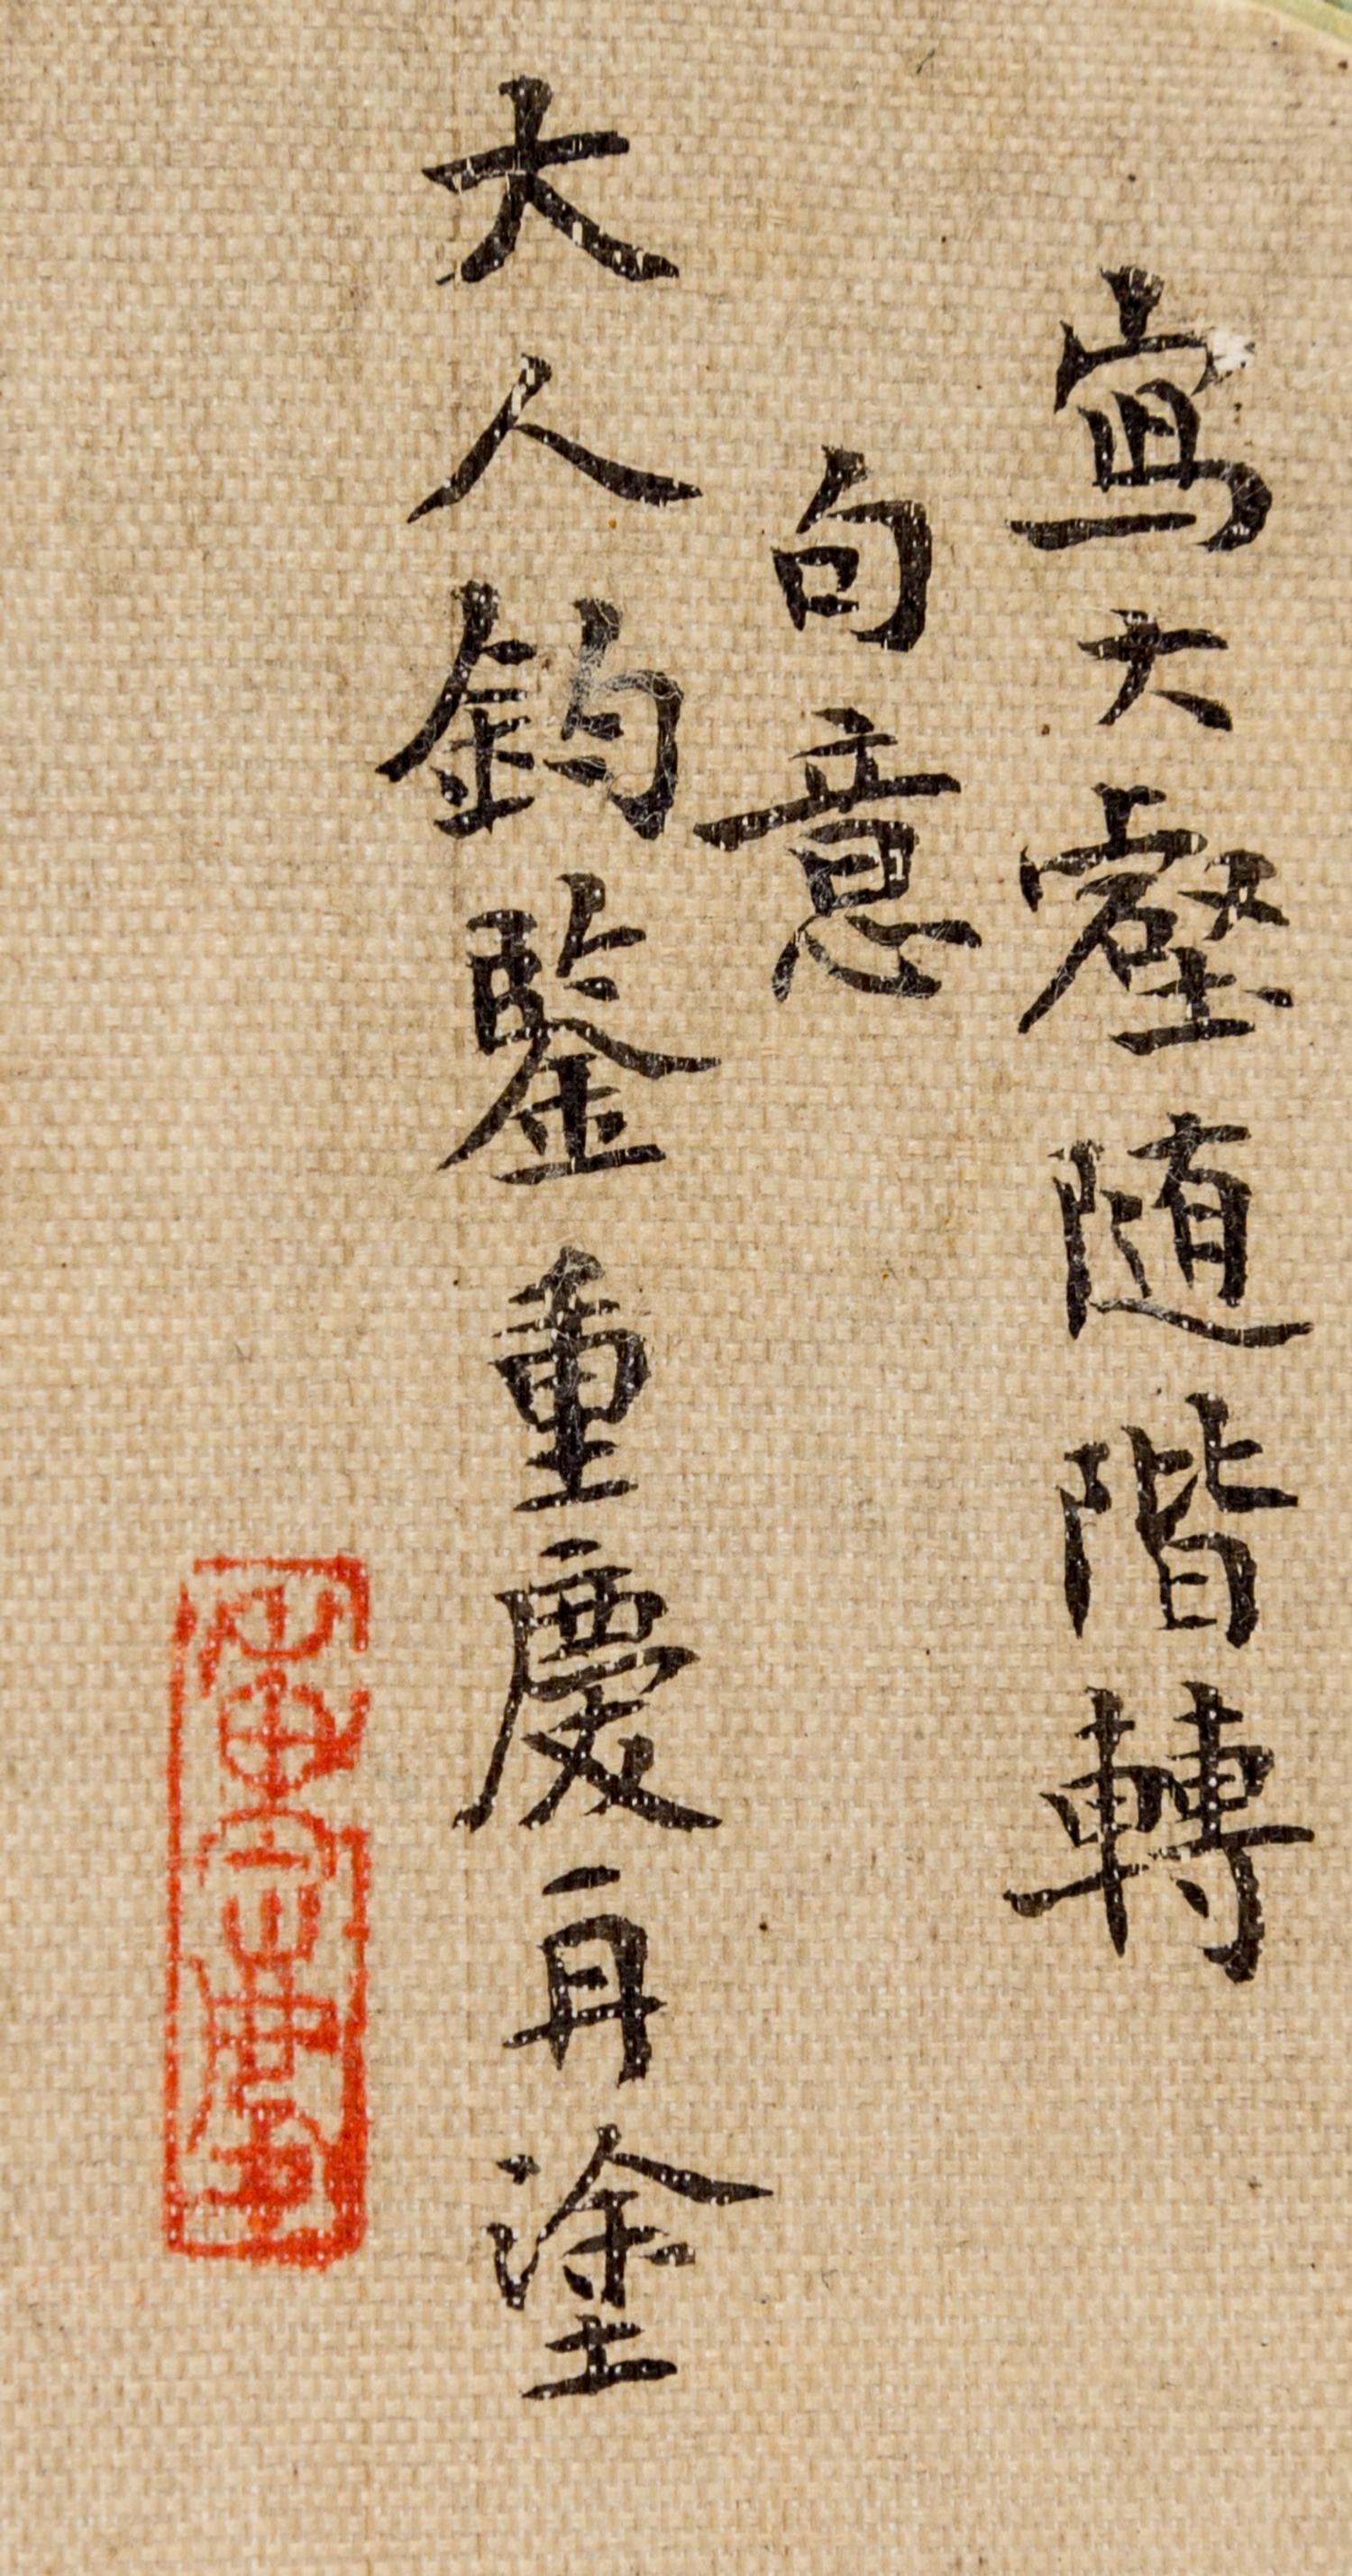 寫大壑随階轉
句意
大人鈞鑒重慶再塗